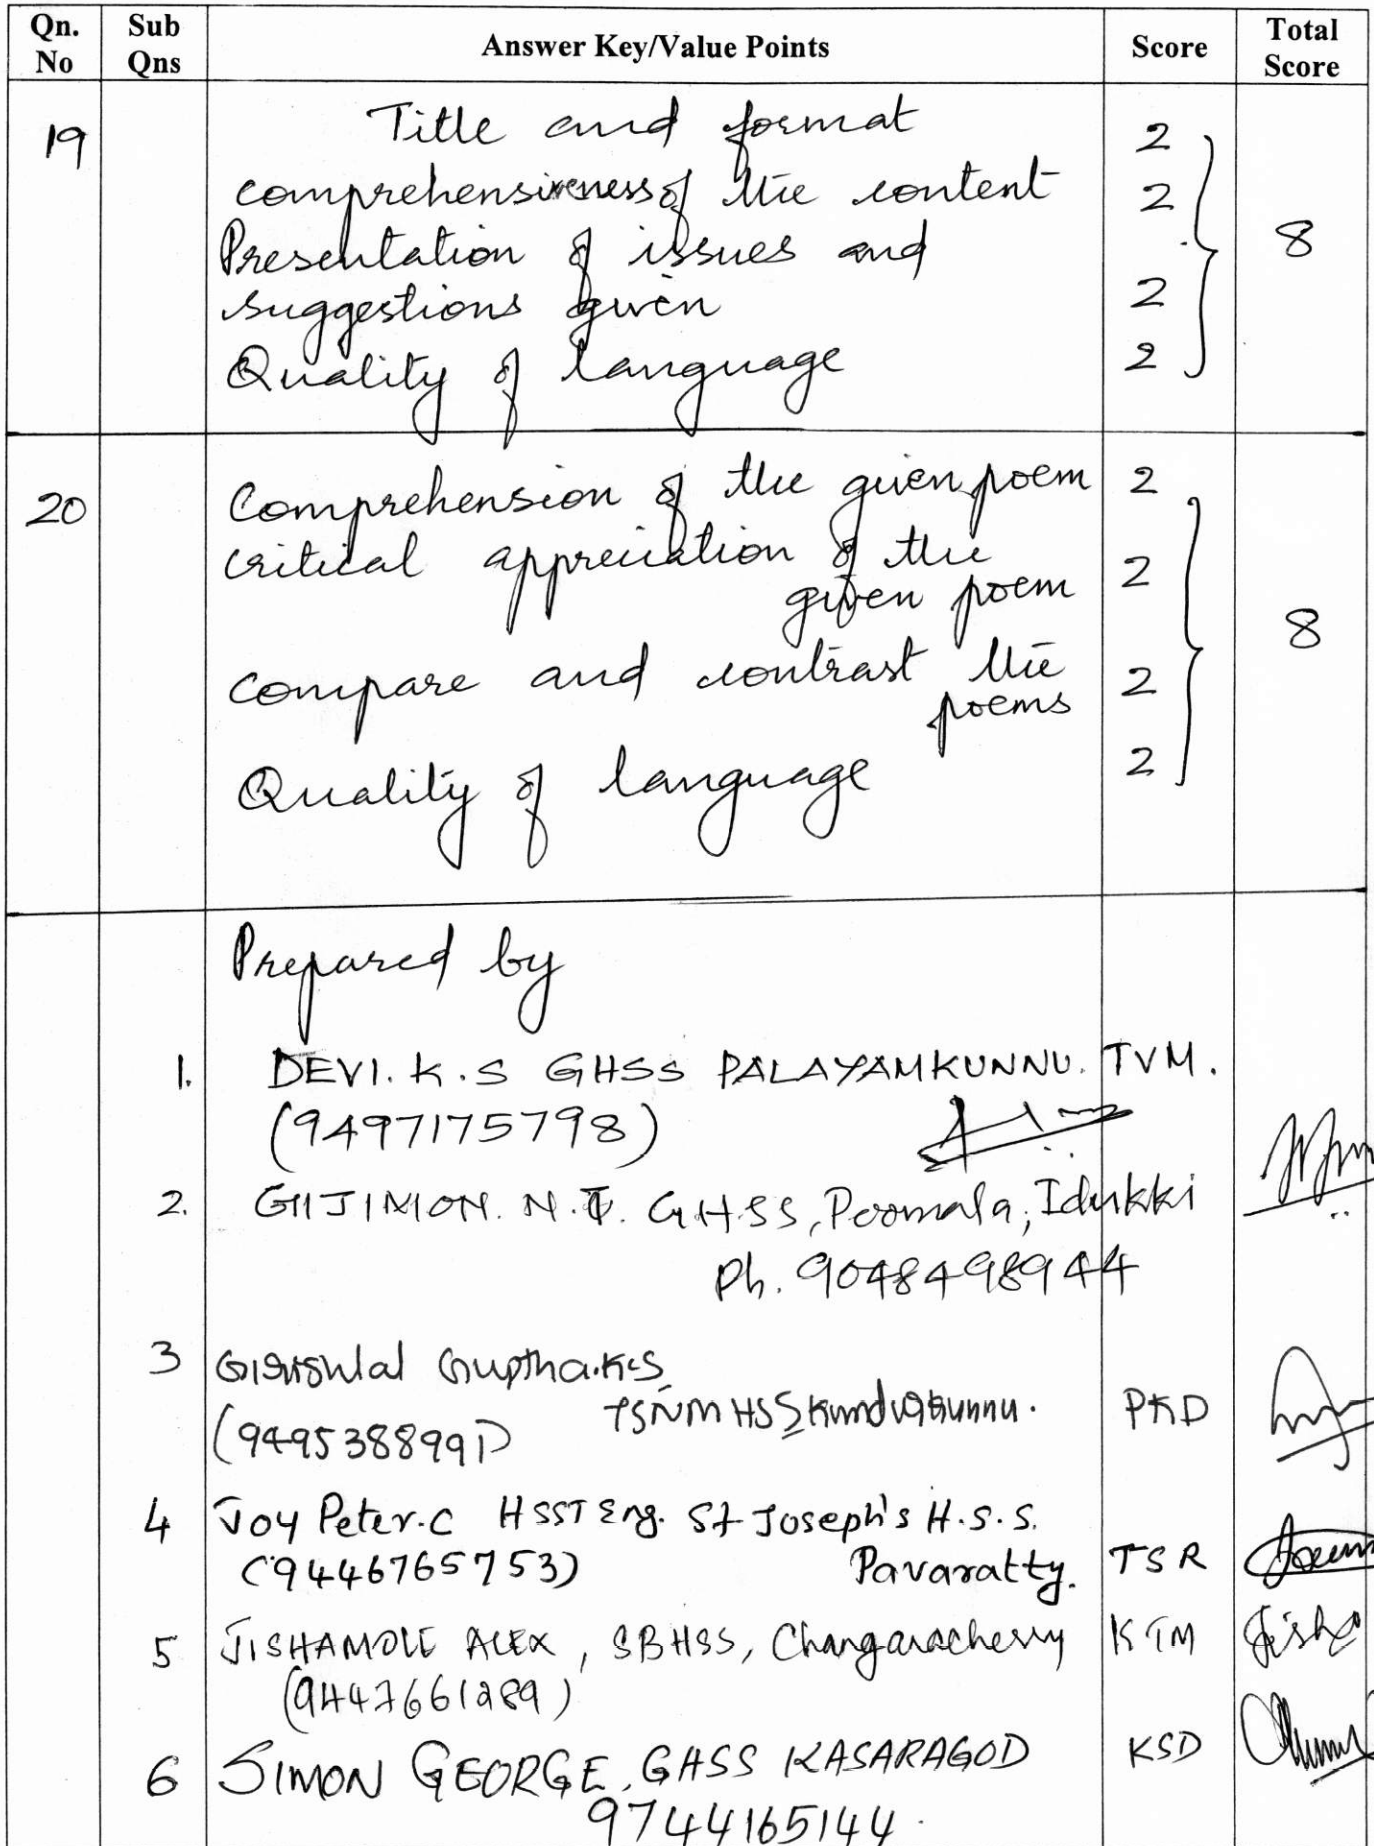 Qn. No Sub Qns Answer Key/Value Points Score Total Score
19 Title and format 2
comprehensiveness of the content 2
Presentation of issues and 8
suggestions given 2
Quality of language 2
20 Comprehension of the given poem 2
critical appreciation of the 2
given poem
8
compare and contrast the 2
poems
Quality of language 2
Prepared by
1. DEVI. K. S GHSS PALAYAMKUNNU. TVM.
(9497175798)
2. GIJIMON. N. GHSS, Poomala, Idukki
Ph. 9048498944
3 Girishlal Guptha.K.S
TSNMHSS PKD
(9495388991)
4 Joy Peter.C HSST Eng. St Joseph's H.S.S.
(9446765753) Pavaratty. TSR
5 JISHAMOLE ALEX, SBHSS, Changanacherry KTM Jisha
(9447661289)
6 SIMON GEORGE, GHSS KASARAGOD KSD
9744165144.